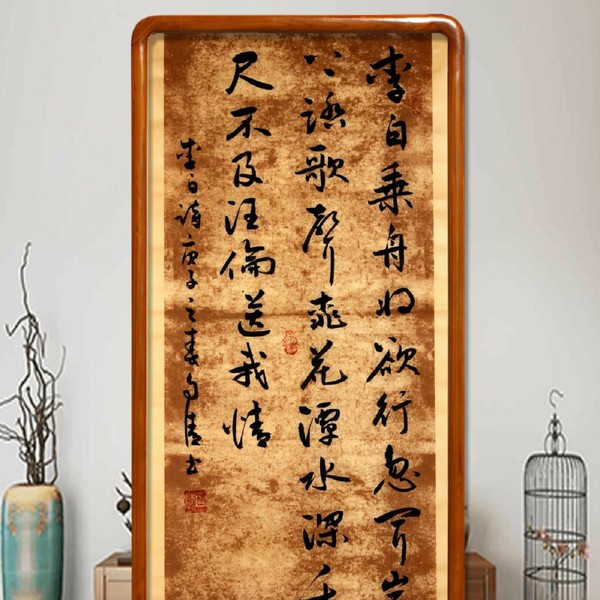 李白乘舟将欲行忽闻岸
上踏歌聲桃花潭水深千
尺不及汪倫送我情
李白詩庚子之春清书